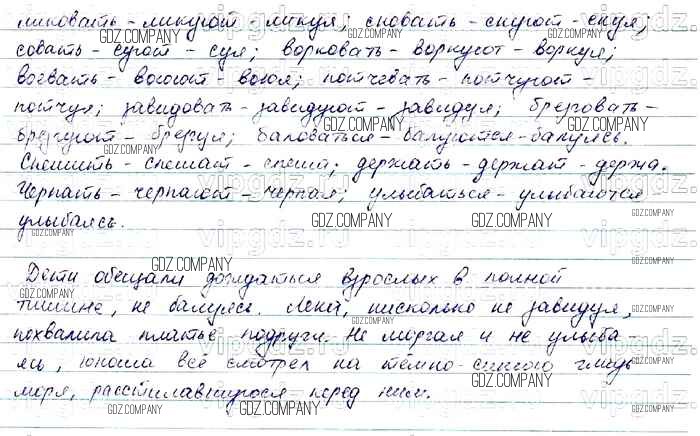 ликовать - ликуют - ликуя; сновать - снуют - снуя;
совать - суют - суя; ворковать - воркуют - воркуя;
воевать - воюют - воюя; потчевать - потчуют -
потчуя; завидовать - завидуют - завидуя; брезговать -
брезгуют - брезгуя; баловаться - балуются - балуясь.
Спешить - спешат - спеша; держать - держат - держа.
Черпать - черпают - черпая; улыбаться - улыбаются
улыбаясь.
Дети обещали дождаться взрослых в полной
тишине, не балуясь. Лена, нисколько не завидуя,
похвалила платье подруги. Не моргая и не улыба
ясь, юноша всё смотрел на тёмно-синюю гладь
моря, расстилавшуюся перед ним.
GDZ.COMPANY
vipgdz.ru